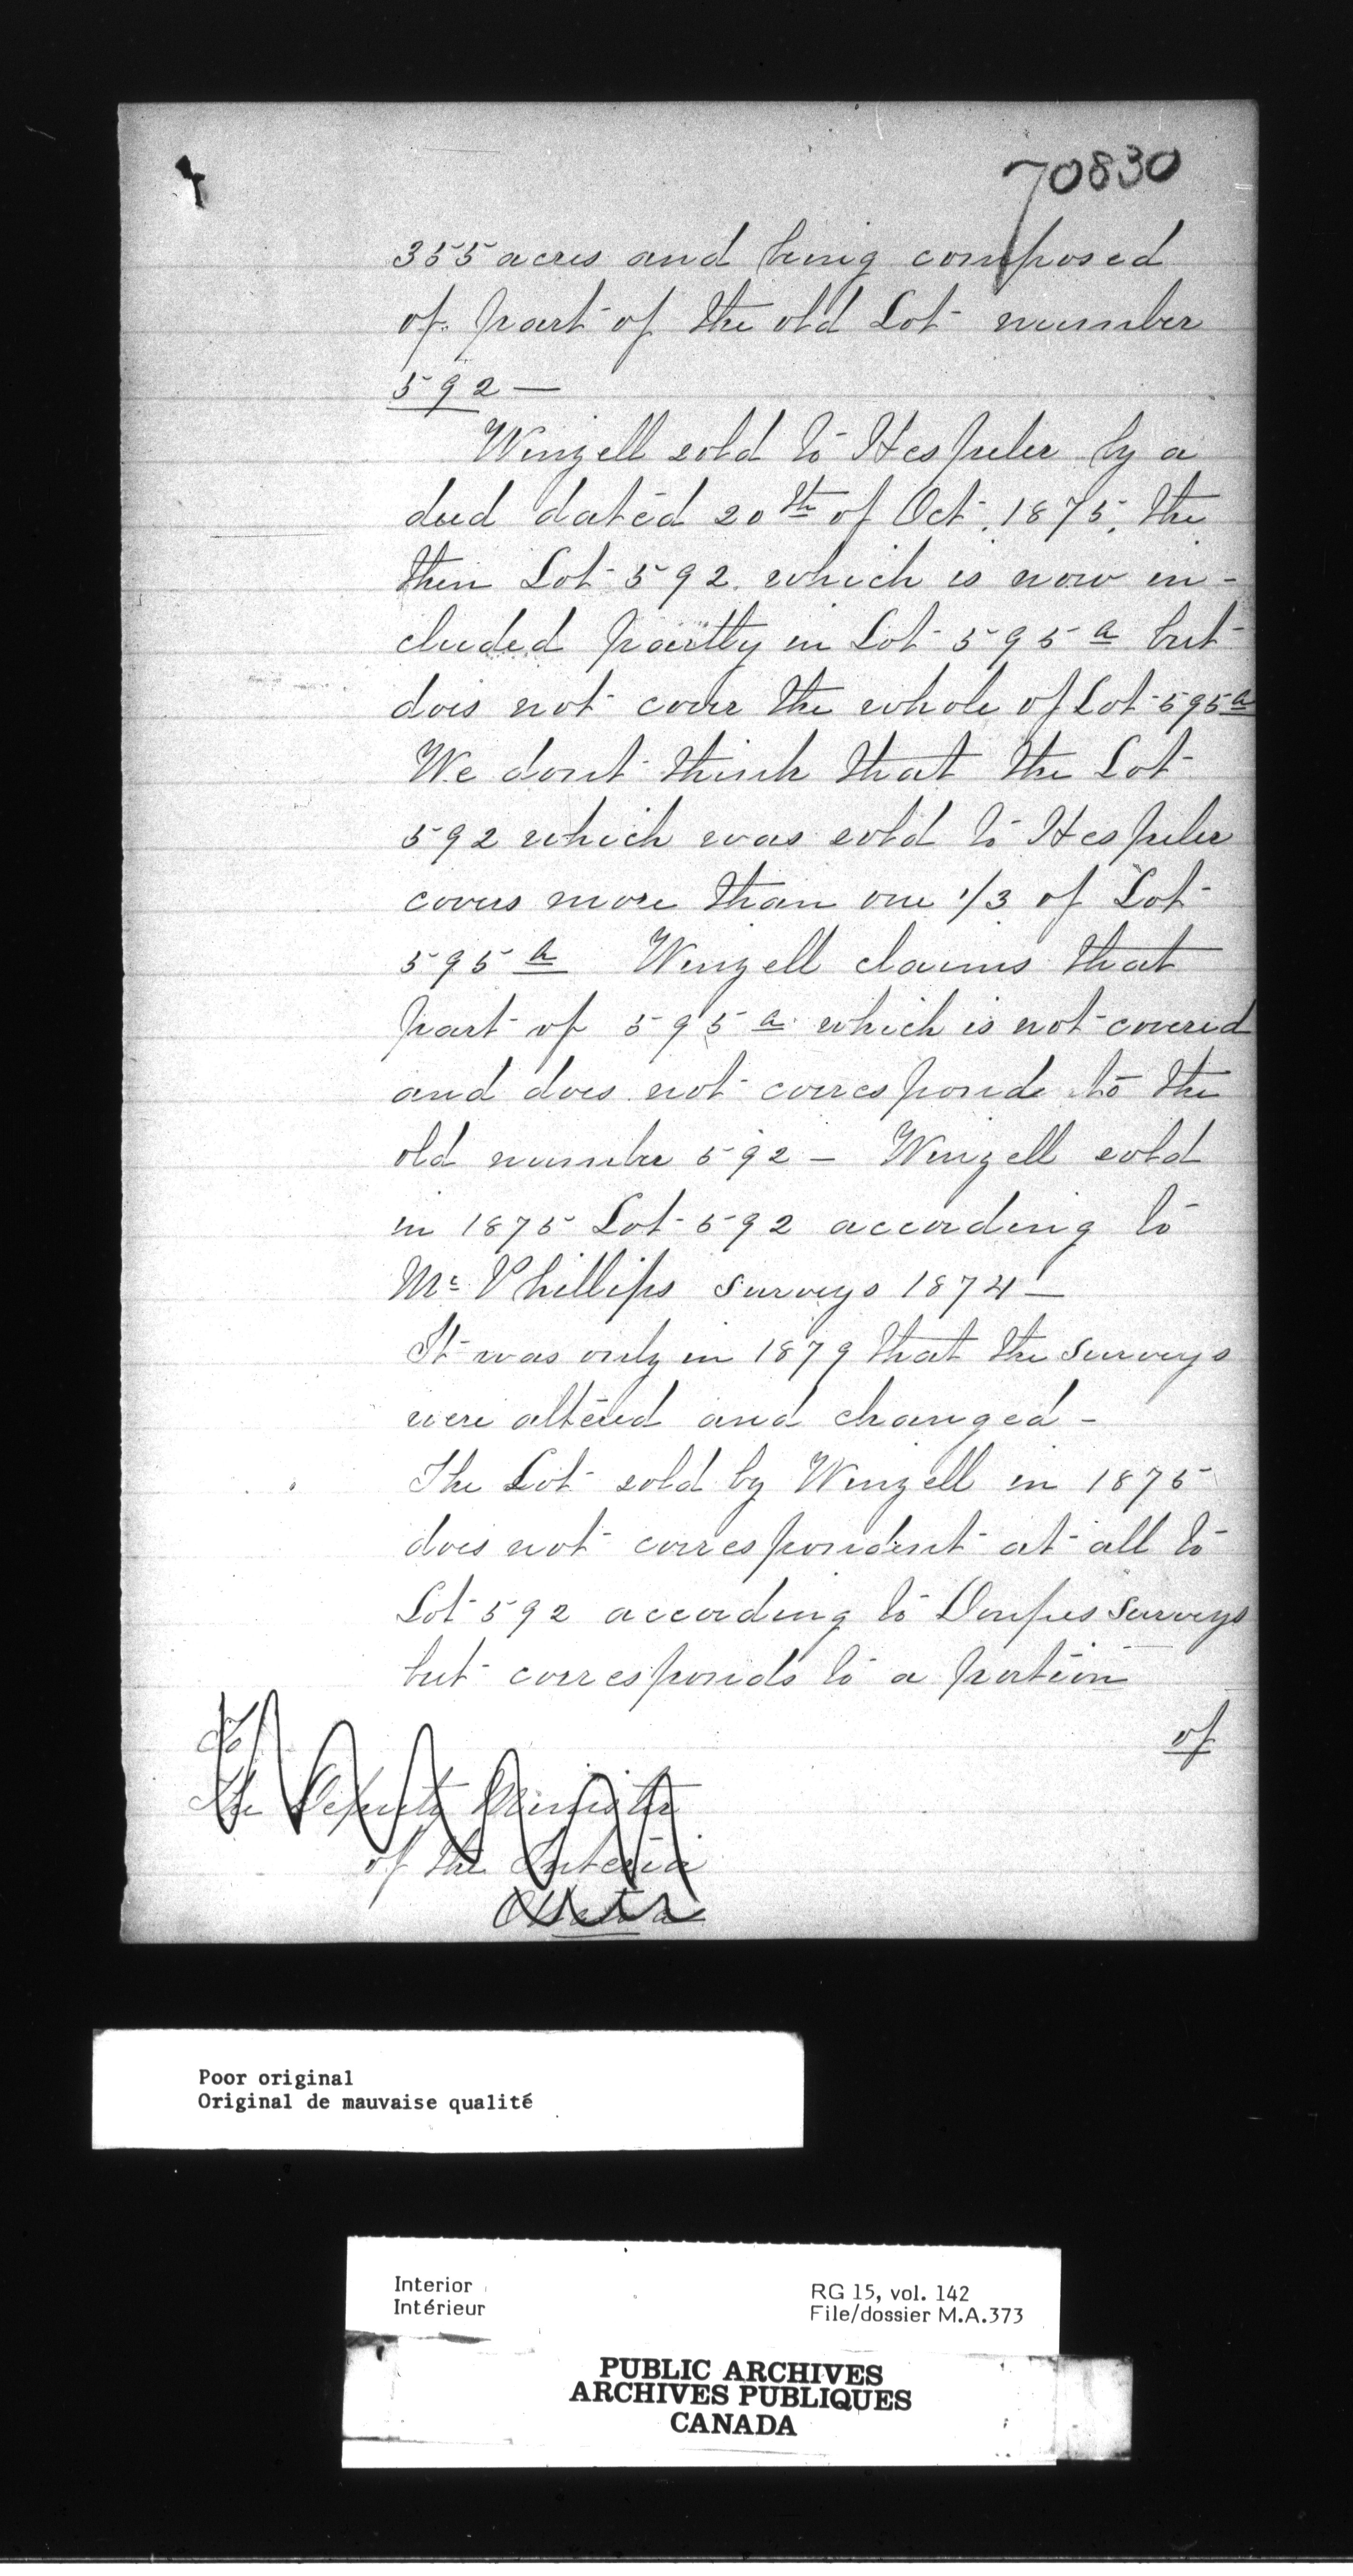 70830
355 acres and being composed
of part of the old Lot number
592 —
Winzell sold to Hespeler by a
deed dated 20th of Oct. 1875, the
then Lot 592 which is now in-
cluded partly in Lot 595a but
does not cover the whole of Lot 595a
We dont think that the Lot
592 which was sold to Hespeler
covers more than one 1/3 of Lot
595a Winzell claims that
part of 595a which is not covered
and does not corresponde to the
old number 592 — Winzell sold
in 1875 Lot 592 according to
Mc Phillips surveys 1874 —
It was only in 1879 that the surveys
were altered and changed —
The Lot sold by Winzell in 1875
does not correspondent at all to
Lot 592 according to Doupes surveys
but corresponds to a portion
of
To
The Deputy Minister
of the Interior
Ottawa
Poor original
Original de mauvaise qualité
Interior
Intérieur
RG 15, vol. 142
File/dossier M.A.373
PUBLIC ARCHIVES
ARCHIVES PUBLIQUES
CANADA